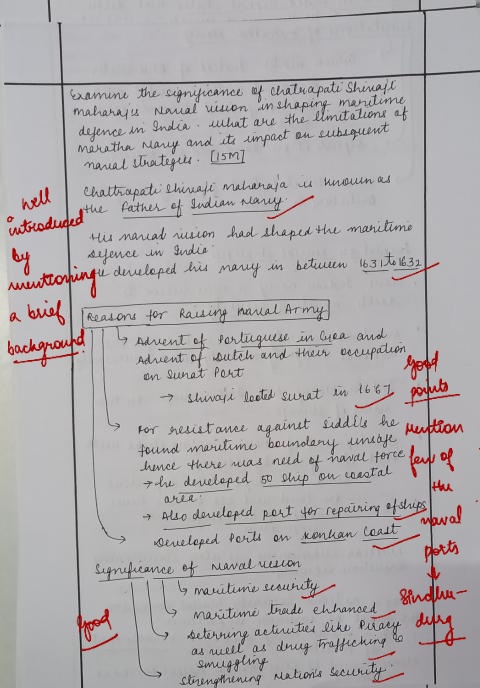 Examine the significance of Chatrapati Shivaji
maharaj's Naval vision in shaping maritime
defence in India. what are the limitations of
maratha Navy and its impact on subsequent
naval strategies. [15M]
Chattrapati Shivaji maharaja is known as
the Father of Indian Navy.
His naval vision had shaped the maritime
Defence in India.
He developed his navy in between 1631 to 1632
a well
introduced
by
mentioning
a brief
background.
Reasons for Raising Naval Army
→ Advent of Portuguese in Goa and
Advent of Dutch and their occupation
on Surat Port
→ Shivaji looted Surat in 1667
Good
points
→ For resistance against Siddi's he
found maritime boundary unsafe
hence there was need of naval force
→ he developed 50 ship on coastal
area.
→ Also developed port for repairing of ships
→ Developed Ports on Konkan Coast
Mention
few of
the
naval
ports
↓
Sindhu-
durg
Significance of Naval vision
→ maritime security
→ maritime trade enhanced
→ Deterring activities like Piracy
as well as drug trafficking &
smuggling
→ Strengthening Nation's Security.
Good